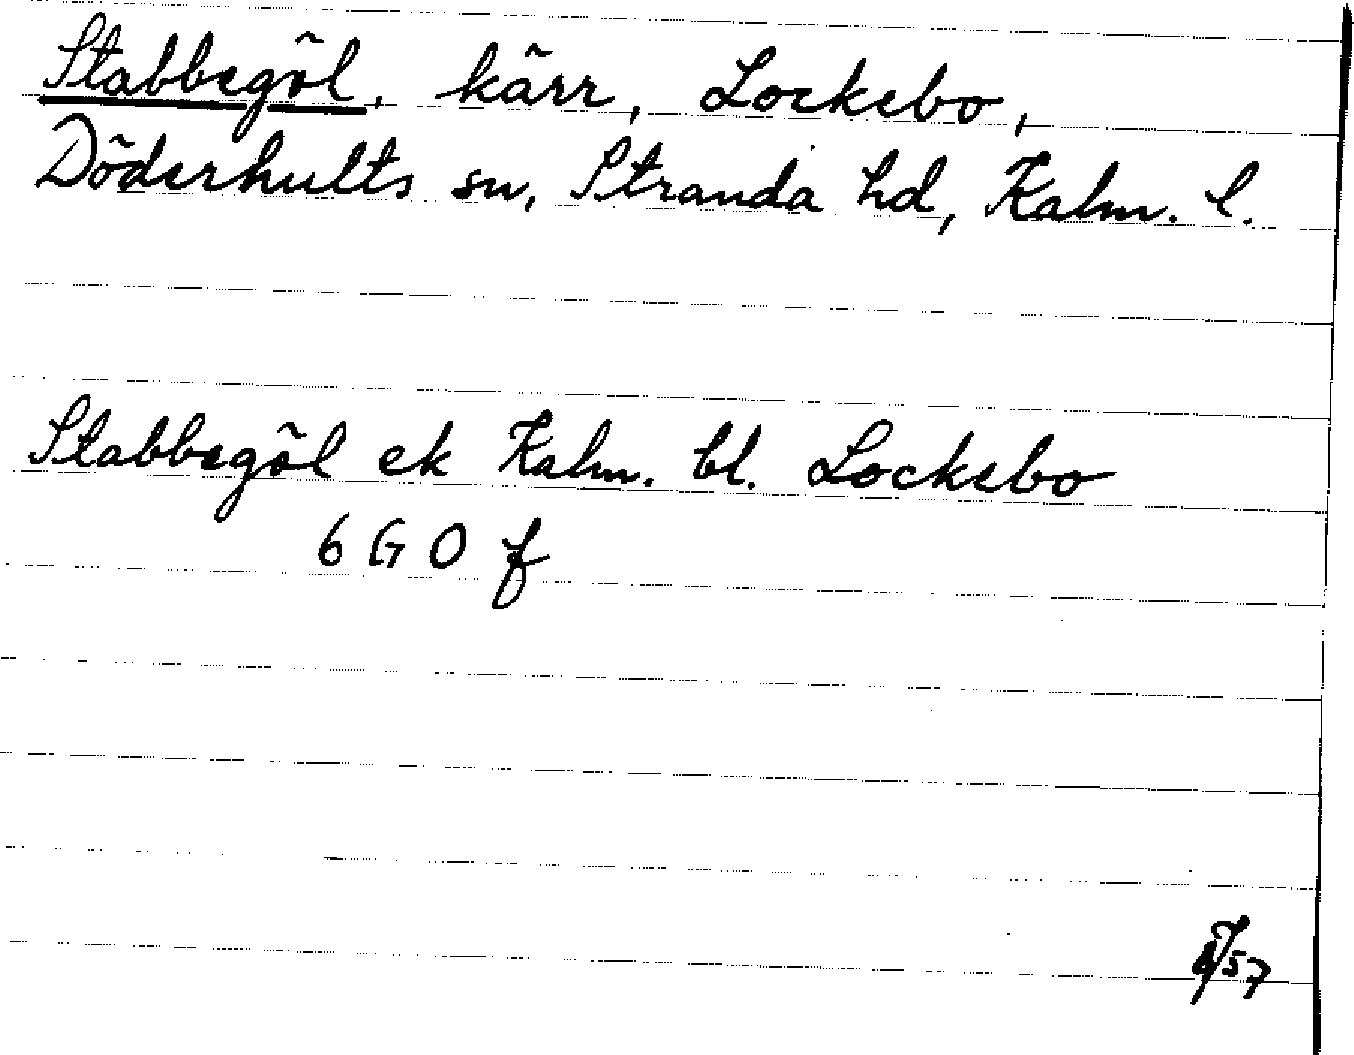 Stabbegöl, kärr, Lockebo,
Döderhults sn, Stranda hd, Kalm. l.
Stabbegöl ek Kalm. bl. Lockebo
6 G 0 f